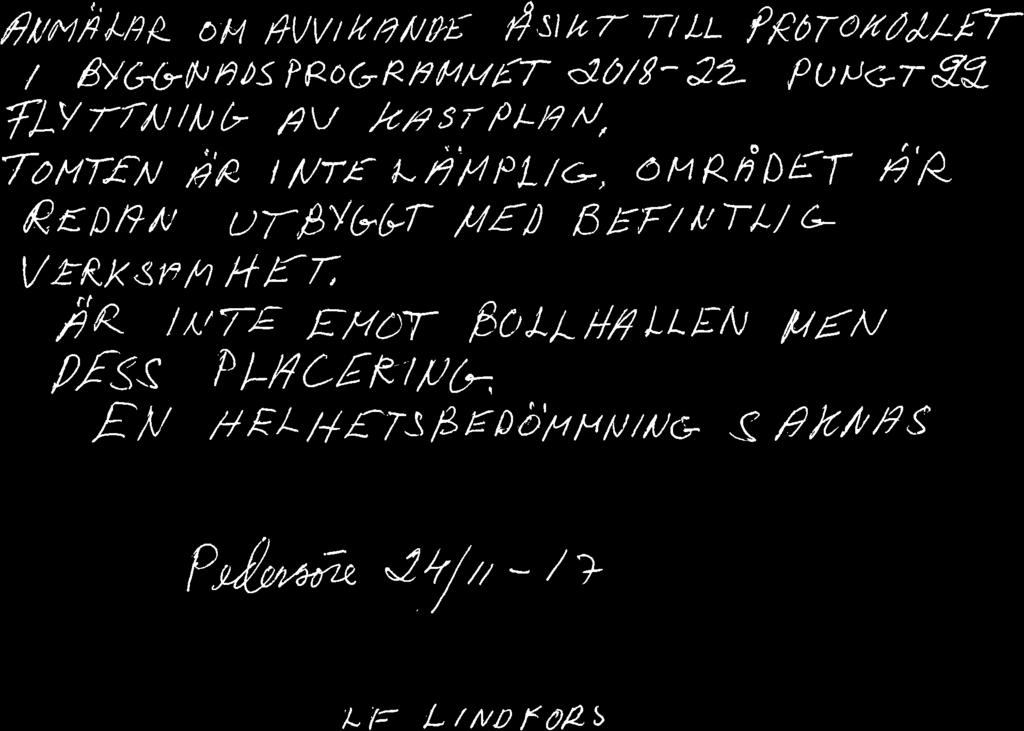 ANMÄLAR OM AVVIKANDE ÅSIKT TILL PROTOKOLLET
I BYGGNADSPROGRAMMET 2018-22 PUNGT 22
FLYTTNING AV KASTPLAN,
TOMTEN ÄR INTE LÄMPLIG, OMRÅDET ÄR
REDAN UTBYGGT MED BEFINTLIG
VERKSAMHET.
ÄR INTE EMOT BOLLHALLEN MEN
DESS PLACERING.
EN HELHETSBEDÖMMNING SAKNAS
Pedersöre 24/11-17
LF LINDFORS